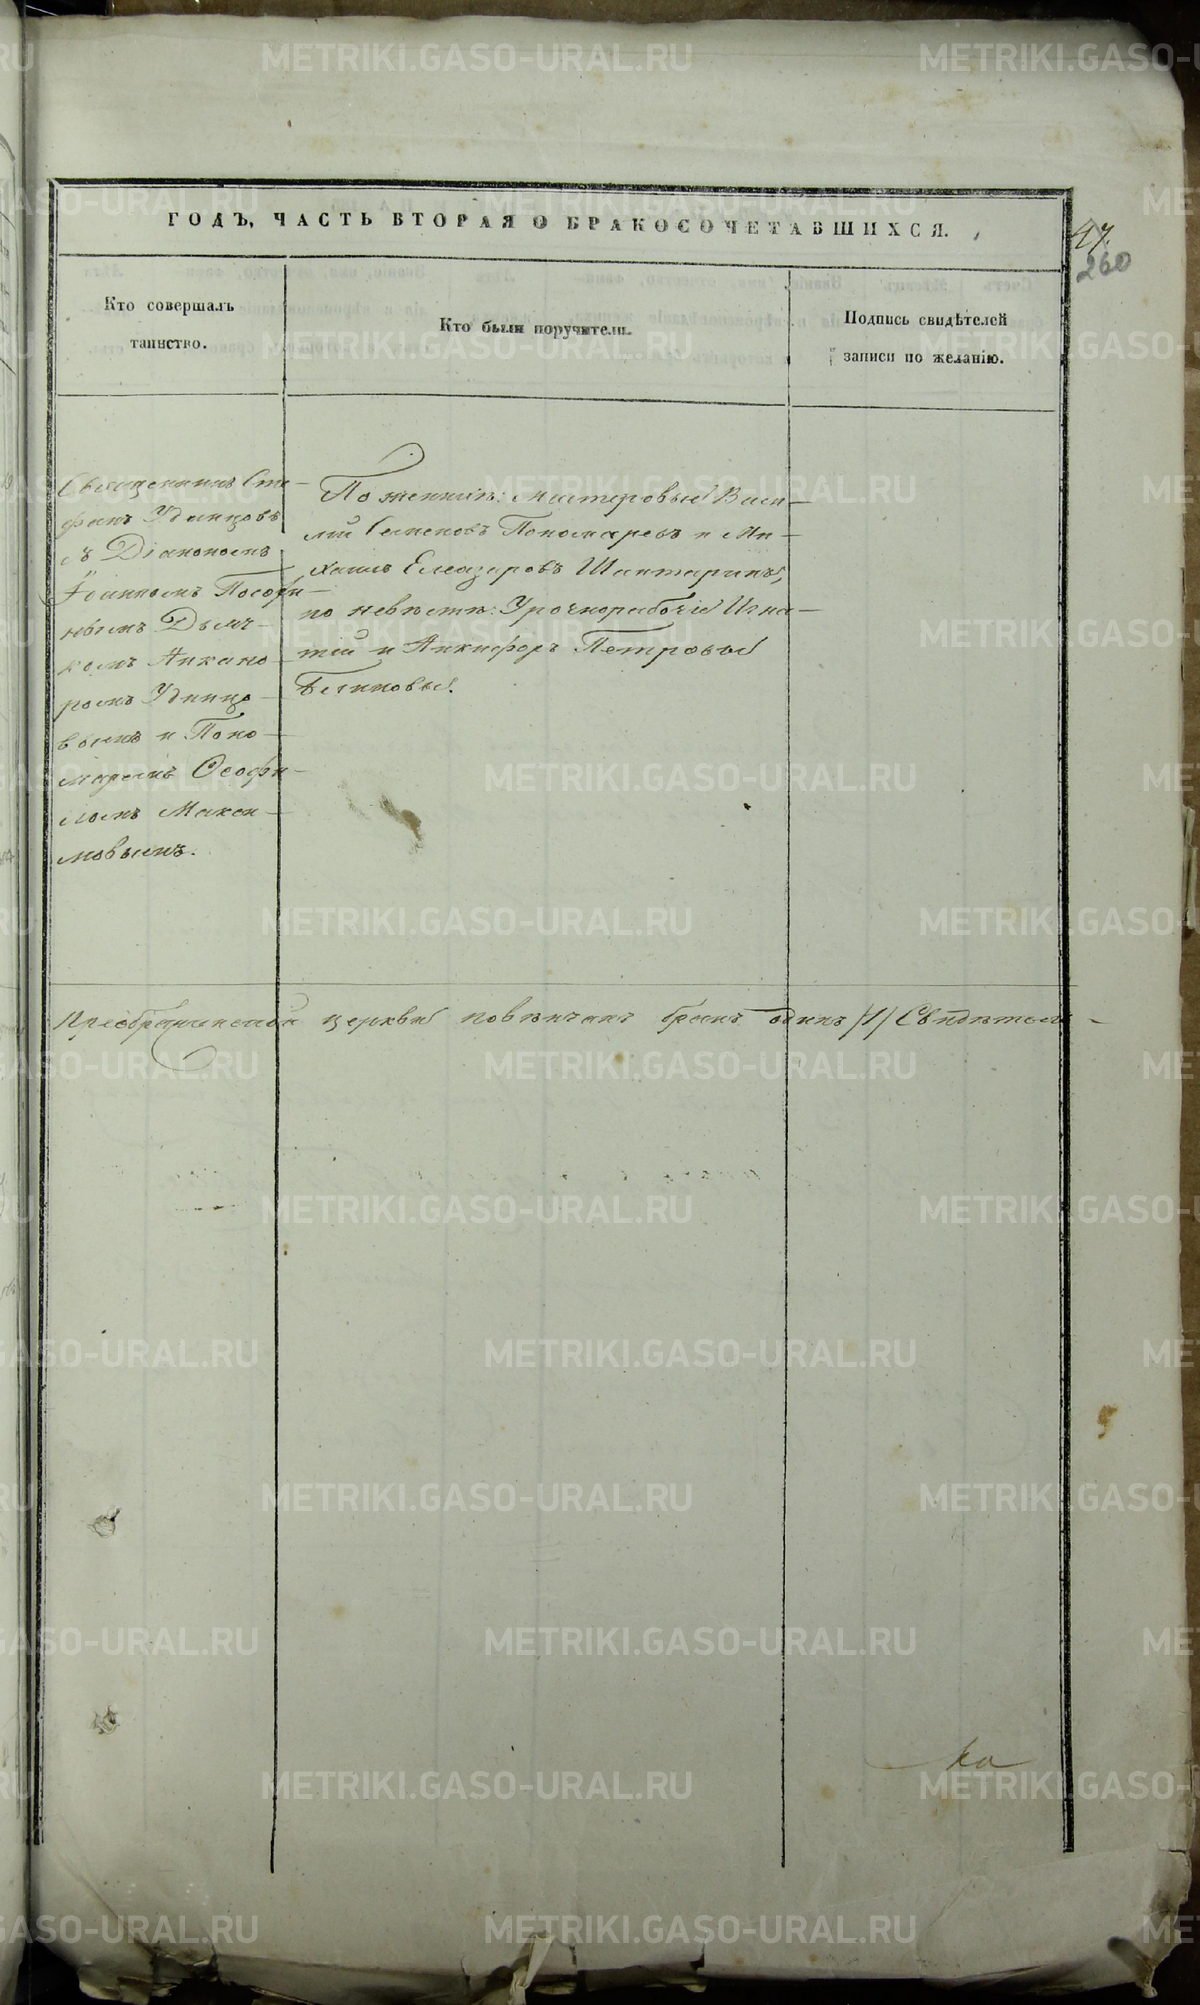 ГОДЪ, ЧАСТЬ ВТОРАЯ О БРАКОСОЧЕТАВШИХСЯ.
47.
260
Кто совершалъ
таинство.
Кто были поручители.
Подпись свидѣтелей
записи по желанію.
Священникъ Сте-
фанъ Удинцовъ
съ Діакономъ
Іоанномъ
Дьяч-
комъ Никано-
ромъ Удинцо-
вымъ и Поно-
маремъ Ѳеофи-
ломъ Макси-
мовымъ.
По женихѣ: мастеровые Васи-
лій Семеновъ Пономаревъ и Ми-
хаилъ Елеазаровъ Шантаринъ,
по невѣстѣ: Урочнорабочіе Игна-
тій и Никифоръ Петровы
Преображенской церкви повѣнчанъ бракъ одинъ /1/ Свидѣтель-
ка
METRIKI.GASO-URAL.RU